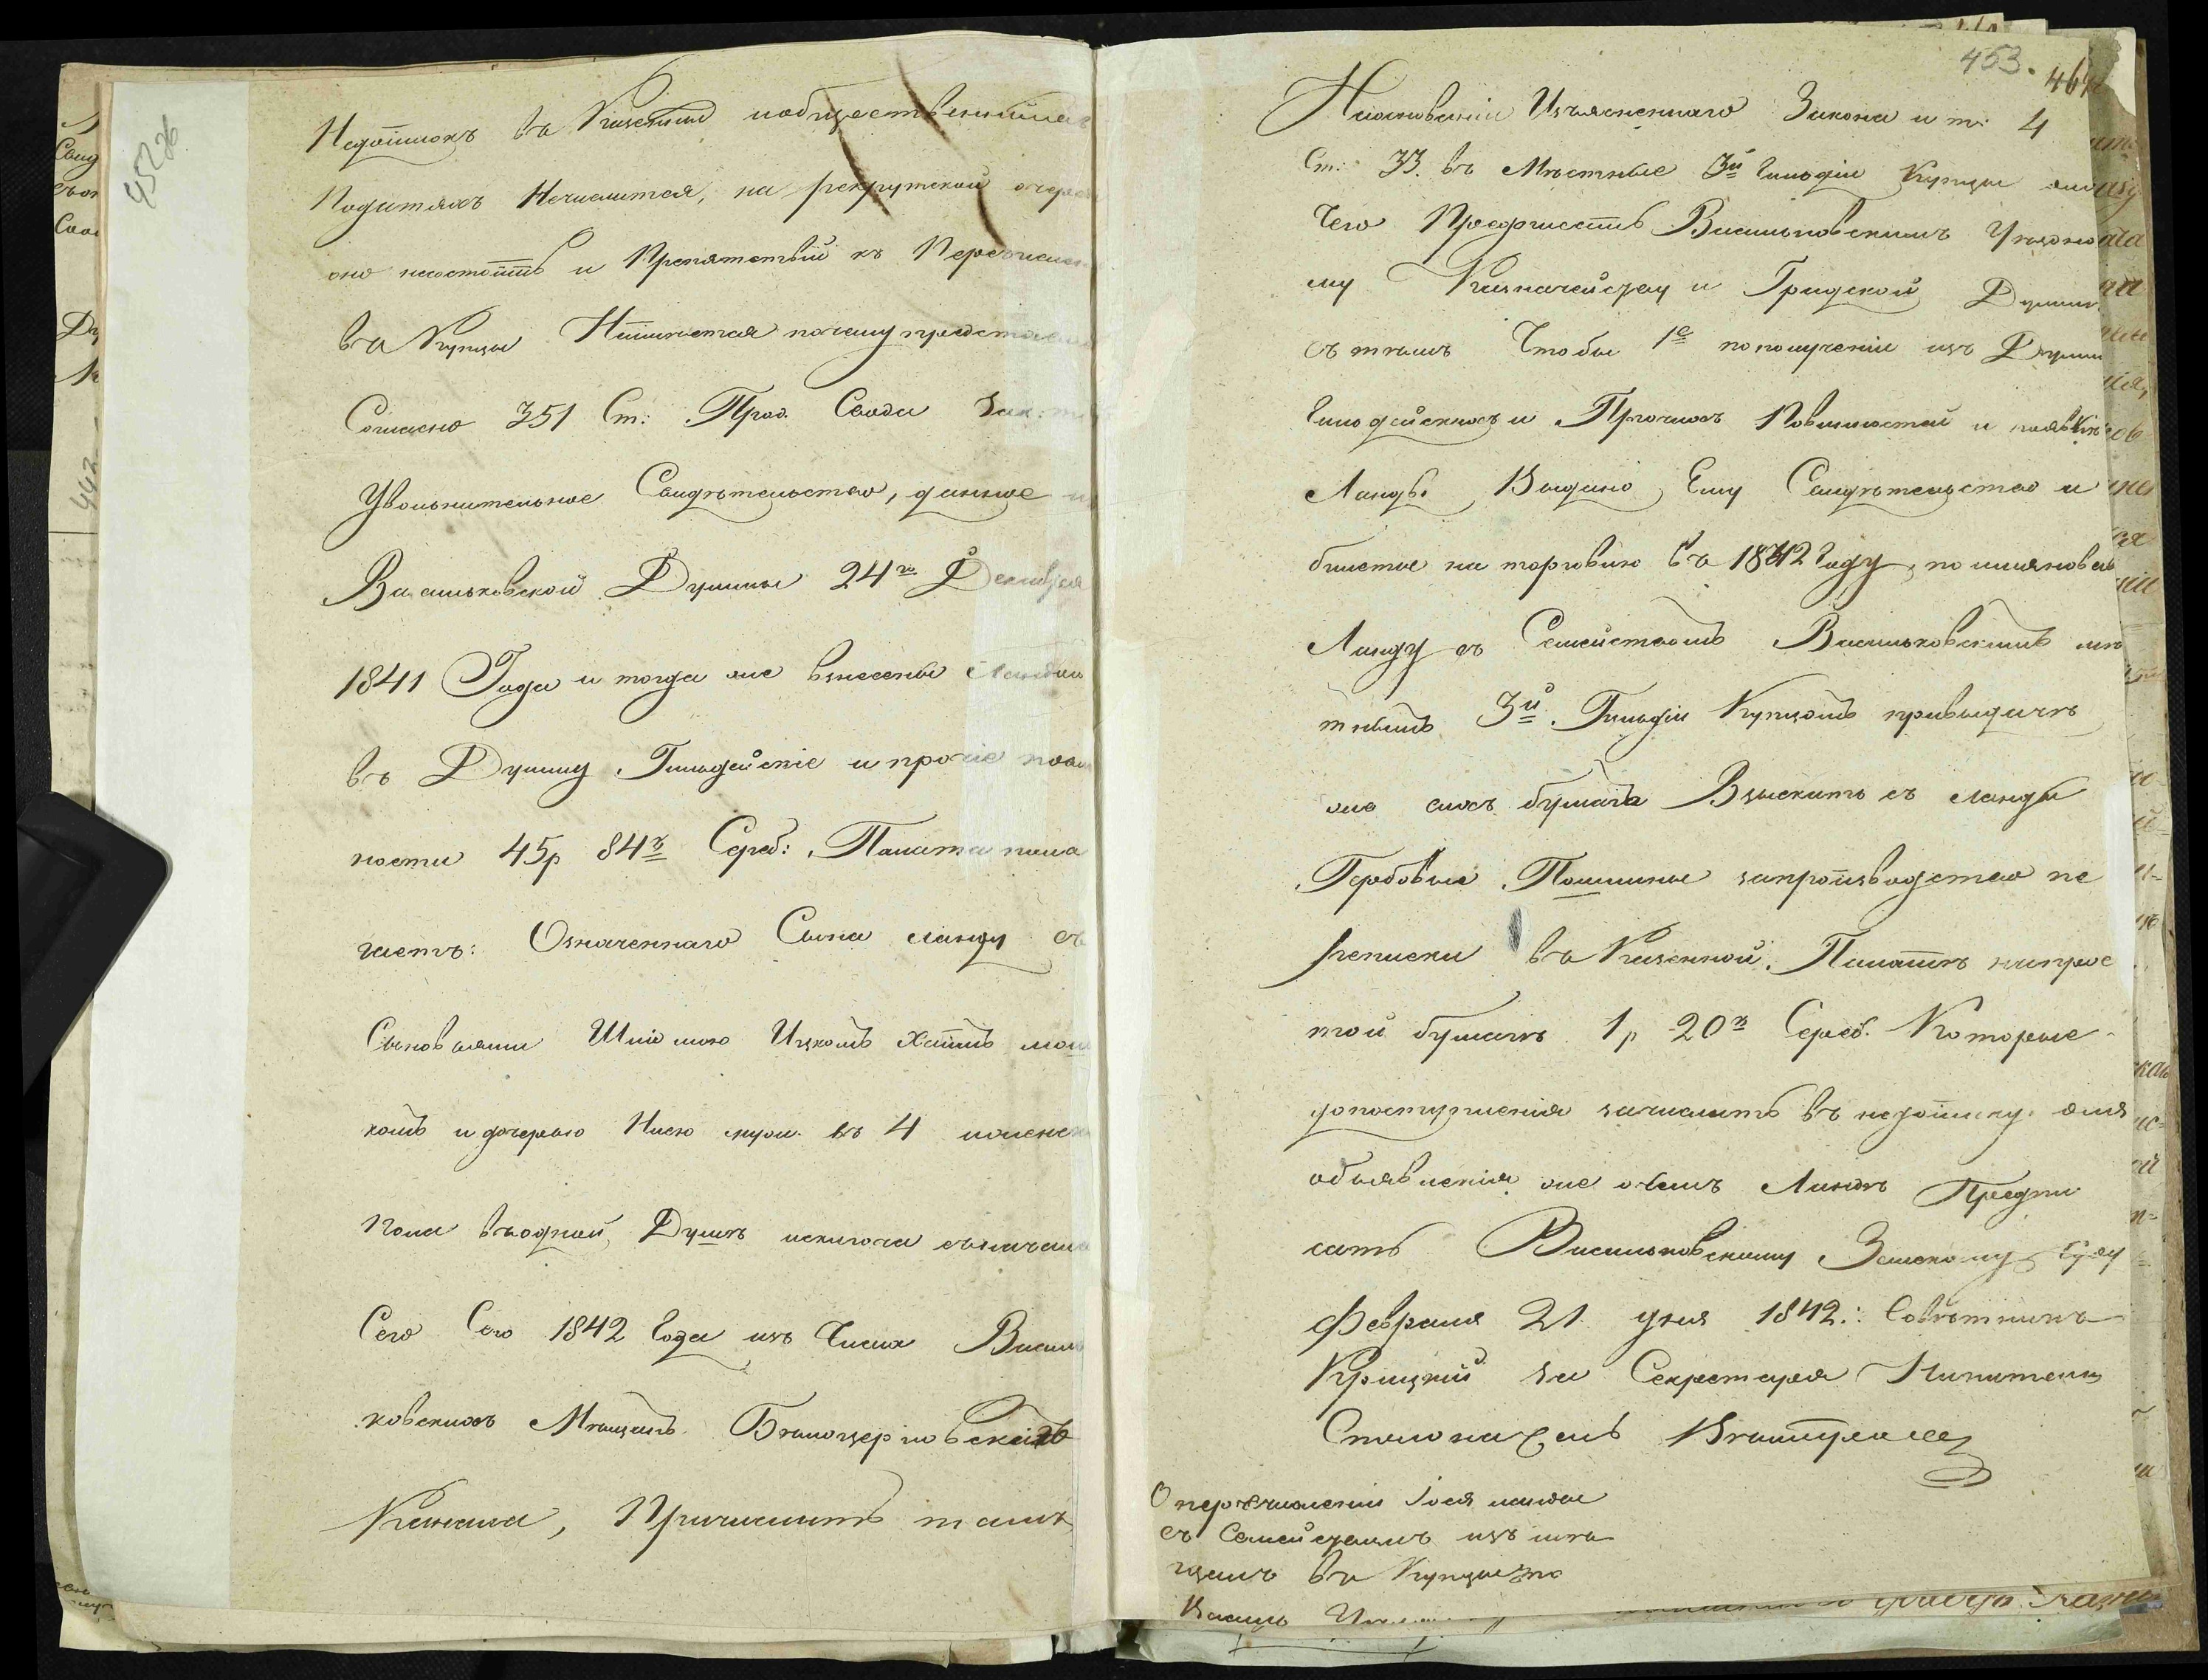 452об
Недоимокъ въ Казенныхъ иобщественныхъ
Податяхъ Нечислится, на рекрутской очере
оно несостоитъ и Препятствій къ Перечислен
въ Купцы Неимѣется почему представ
Согласно 351 Ст: Прод. Свода Зак:
Увольнительное Свидѣтельство, данное
Васильковской Думы 24го Декабря
1841 Года и тогда же взнесены Ландою
въ Думу Гильдейскіе и прочіе пови
ности 45р 84к Сереб: Палата пола
гаетъ: Означеннаго Сына Ланду съ
Сыновьями Ицкомъ Хаимъ мош
комъ и дочерью муж. въ 4 и женск
пола въодной Душѣ исключа съначала
Сего Сего 1842 Года изъ Числа Василь
ковскихъ Мѣщанъ Бѣлоцерковскаго
Кагала, Причислить тамъ
453. 464
Наосновании Изъясненнаго Закона и т: 4
Ст: 33. въ Мѣстные 3й Гильдіи Купцы для
Чего Предписать Васильковскимъ Уѣздно
му Казначейству и Градской Думѣ
съ тѣмъ Чтобы 1е пополученіи изъ Думы
Гильдейскихъ и Прочихъ Повинностей и появкѣ
Ланды Выдано Ему Свидѣтельство и
билетъ на торговлю въ 1842 Году, поименовав
Ланду съ Семействомъ Васильковскимъ мѣ
тнымъ 3й Гильдіи Купцомъ привыдачѣ
же сихъ бумагъ Взыскать съ Ланды
Гербовыя Пошлины запроизводство пе
реписки въ Казенной Палатѣ напрос
той бумагѣ 1р 20к Сереб. Которые
допоступленія зачислить въ недоимку для
объявленія же овсемъ Ландѣ Предпи
сать Васильковскому Земскому Суду
Февраля 21 дня 1842: Совѣтникъ
Крицкій за Секретаря
Столоначаль
О перечисленіи Ланды
съ Семействомъ изъ мѣ
щанъ въ Купцы по